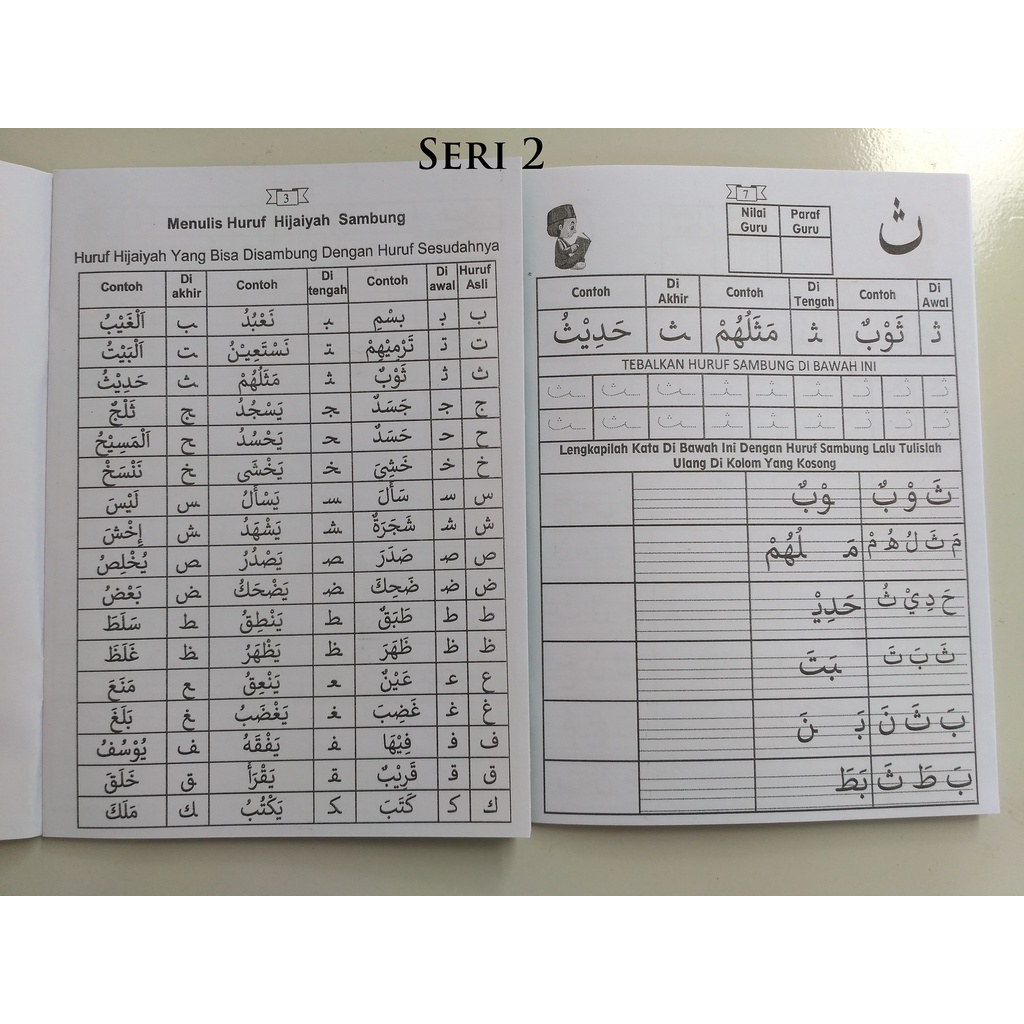 SERI 2
3
Menulis Huruf Hijaiyah Sambung
Huruf Hijaiyah Yang Bisa Disambung Dengan Huruf Sesudahnya
Contoh Di akhir Contoh Di tengah Contoh Di awal Huruf Asli
ب بـ بِسْمِ ـبـ نَعْبُدُ ـب اَلْغَيْبُ
ت تـ تَرْمِيْهِمْ ـتـ نَسْتَعِيْنُ ـت اَلْبَيْتُ
ث ثـ ثَوْبٌ ـثـ مَثَلُهُمْ ـث حَدِيْثُ
ج جـ جَسَدٌ ـجـ يَسْجُدُ ـج ثَلْجٌ
ح حـ حَسَدٌ ـحـ يَحْسُدُ ـح اَلْمَسِيْحُ
خ خـ خَشِيَ ـخـ يَخْشَى ـخ نَنْسَخْ
س سـ سَأَلَ ـسـ يَسْأَلُ ـس لَيْسَ
ش شـ شَجَرَةٌ ـشـ يَشْهَدُ ـش إِخْشَ
ص صـ صَدَرَ ـصـ يَصْدُرُ ـص يُخْلِصُ
ض ضـ ضَحِكَ ـضـ يَضْحَكُ ـض بَعْضُ
ط ط طَبَقٌ ـط يَنْطِقُ ـط سَلَطَ
ظ ظ ظَهَرَ ـظ يَظْهَرُ ـظ غَلَظَ
ع عـ عَيْنٌ ـعـ يَنْعِقُ ـع مَنَعَ
غ غـ غَضِبَ ـغـ يَغْضَبُ ـغ بَلَغَ
ف فـ فِيْهَا ـفـ يَفْقَهُ ـف يُوْسُفُ
ق قـ قَرِيْبٌ ـقـ يَقْرَأُ ـق خَلَقَ
ك كـ كَتَبَ ـكـ يَكْتُبُ ـك مَلَكَ
7
Nilai Guru Paraf Guru
ث
Contoh Di Akhir Contoh Di Tengah Contoh Di Awal
ثـ ثَوْبٌ ـثـ مَثَلُهُمْ ـث حَدِيْثُ
TEBALKAN HURUF SAMBUNG DI BAWAH INI
ثـ ثـ ثـ ـثـ ـثـ ـثـ ـث ـث ـث
ثـ ثـ ثـ ـثـ ـثـ ـثـ ـث ـث ـث
Lengkapilah Kata Di Bawah Ini Dengan Huruf Sambung Lalu Tulislah
Ulang Di Kolom Yang Kosong
ثَ وْ بٌ وْبٌ
مَ ثَ لُ هُ مْ مَـ ـلُهُمْ
حَ دِ يْ ثُ حَدِيْـ
ثَ بَ تَ ـبَتَ
بَ ثَ نَ بَـ ـنَ
بَ طَ ثَ بَطَ